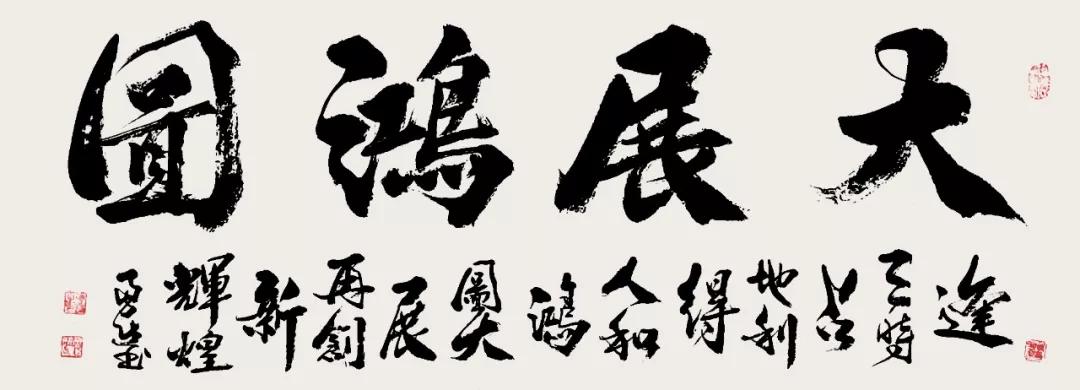 大展鴻圖
逢天時占地利得人和鴻圖大展再創新輝煌